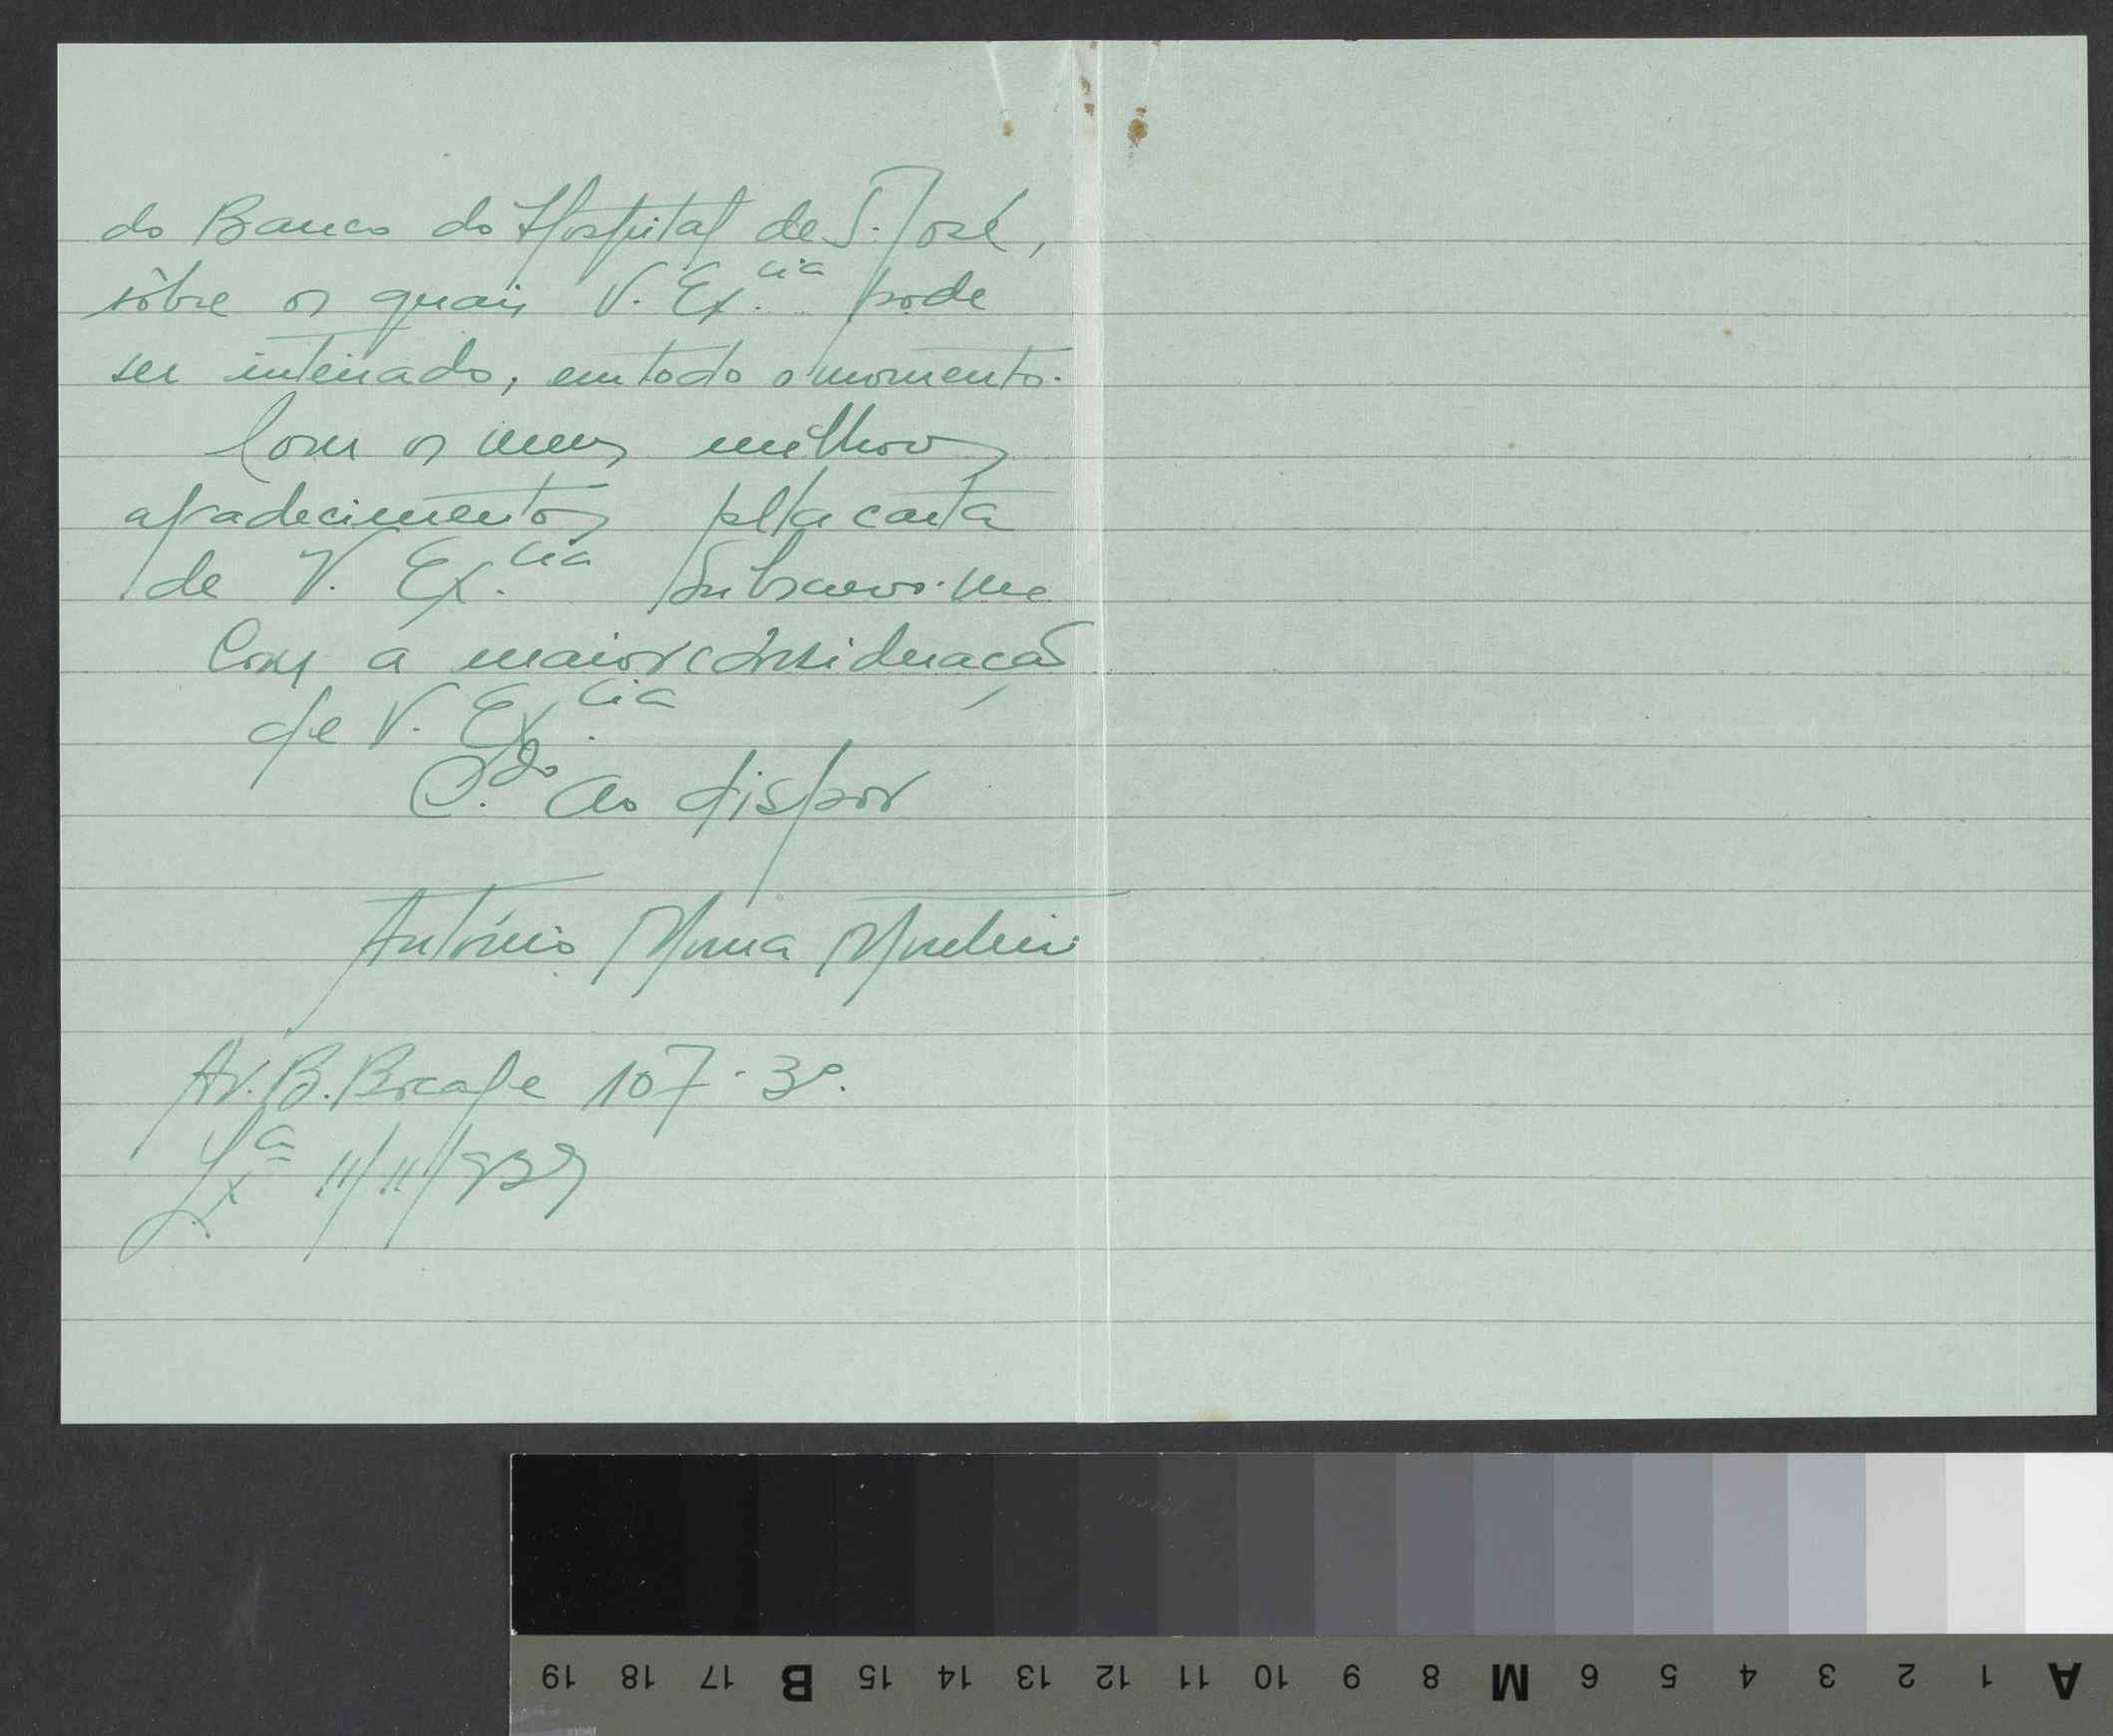 do Banco do Hospital de S. José,
sôbre os quais V. Ex.cia pode
ser inteirado, em todo o momento.
Com os meus melhores
agradecimentos pella carta
de V. Ex.cia subscrevo-me
Com a maior consideração
de V. Ex.cia
C.do ao dispor
António
Av. B. Bocage 107-3º.
Lxª 11/11/939
19 18 17 B 15 14 13 12 11 10 9 8 M 6 5 4 3 2 1 A